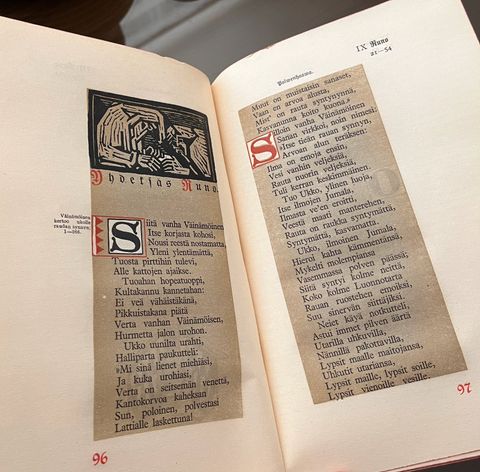 Yhdeksäs Runo.
Väinämöinen
kertoo ukolle
raudan synnyn:
Siitä vanha Väinämöinen
Itse korjasta kohosi,
Nousi reestä nostamatta,
Yleni ylentämättä,
Tuosta pirttihin tulevi,
Alle kattojen ajaikse.
Tuoahan hopeatuoppi,
Kultakannu kannetahan:
Ei veä vähäistäkänä,
Pikkuistakana piätä
Verta vanhan Väinämöisen,
Hurmetta jalon urohon.
Ukko uunilta urahti,
Halliparta paukutteli:
»Mi sinä lienet miehiäsi,
Ja kuka urohiasi,
Verta on seitsemän venettä,
Kantokorvoa kaheksan
Sun, poloinen, polvestasi
Lattialle laskettuna!
96
Polvenhaava.
IX Runo
21—54
Muut on muistaisin sanaset,
Vaan en arvoa alusta,
Mist' on rauta syntynynnä,
Kasvanunna koito kuona.»
Silloin vanha Väinämöinen
Sanan virkkoi, noin nimesi:
»Itse tieän rauan synnyn,
Arvoan alun teräksen:
Ilma on emoja ensin,
Vesi vanhin veljeksiä,
Rauta nuorin veljeksiä,
Tuli kerran keskimmäinen.
Tuo Ukko, ylinen luoja,
Itse ilmojen Jumala,
Ilmasta ve'en eroitti,
Veestä maati manterehen,
Rauta on raukka syntymättä,
Syntymättä, kasvamatta.
Ukko, ilmoinen Jumala,
Hieroi kahta kämmentänsä,
Mykelti molempiansa
Vasemmassa polven päässä;
Siitä syntyi kolme neittä,
Koko kolme Luonnotarta
Rauan ruostehen emoiksi,
Suu sinervän siittäjiksi.
Neiet käyä notkutteli,
Astui immet pilven äärtä
Utarilla uhkuvilla,
Nännillä pakottavilla,
Lypsit maalle maitojansa,
Uhkutit utariansa,
Lypsit maille, lypsit soille,
Lypsit vienoille vesille.
97